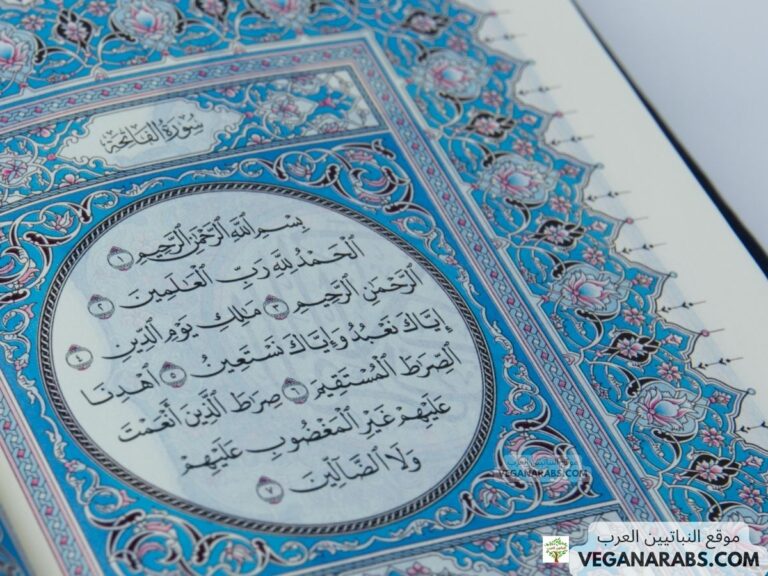 سُورَةُ الفَاتِحَةِ
بِسْمِ ٱللَّهِ ٱلرَّحْمَٰنِ ٱلرَّحِيمِ ١
ٱلْحَمْدُ لِلَّهِ رَبِّ ٱلْعَٰلَمِينَ ٢
ٱلرَّحْمَٰنِ ٱلرَّحِيمِ ٣ مَٰلِكِ يَوْمِ ٱلدِّينِ ٤
إِيَّاكَ نَعْبُدُ وَإِيَّاكَ نَسْتَعِينُ ٥ ٱهْدِنَا
ٱلصِّرَٰطَ ٱلْمُسْتَقِيمَ ٦ صِرَٰطَ ٱلَّذِينَ أَنْعَمْتَ
عَلَيْهِمْ غَيْرِ ٱلْمَغْضُوبِ عَلَيْهِمْ
وَلَا ٱلضَّآلِّينَ ٧
موقع النباتيين العرب
VEGANARABS.COM
موقع النباتيين العرب
VEGANARABS.COM